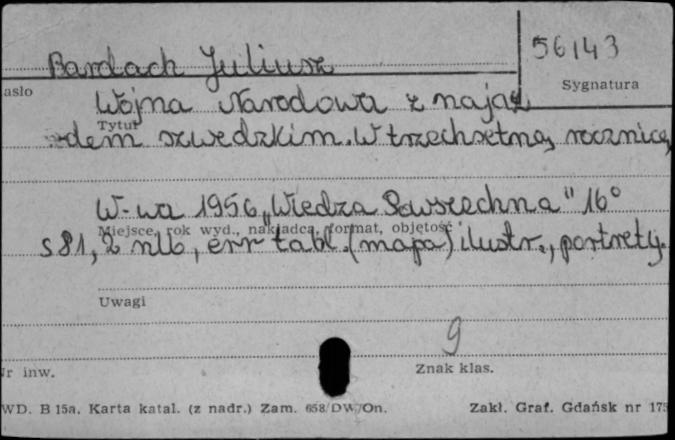 56143
Bardach Juliusz
asło
Sygnatura
Wojna Narodowa z najaz
Tytuł
dem szwedzkim. W trzechsetną rocznicę
W-wa 1956 „Wiedza Powszechna" 16°
Miejsce, rok wyd., nakładca, format, objętość
s 81, 2 nlb, err tabl. (mapa) ilustr., portrety.
Uwagi
9
Nr inw.
Znak klas.
WD. B 15a. Karta katal. (z nadr.) Zam. 658/DW/On.
Zakł. Graf. Gdańsk nr 175